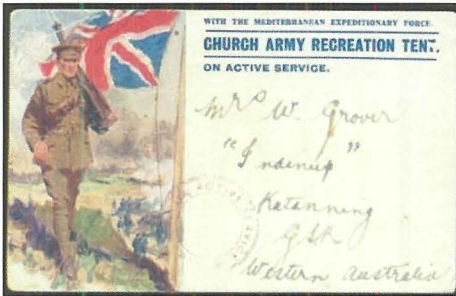 WITH THE MEDITERRANEAN EXPEDITIONARY FORCE.
CHURCH ARMY RECREATION TENT.
ON ACTIVE SERVICE.
Mrs W. Grover
"Indinup"
Katanning
GSR
Western Australia
ACTIVE